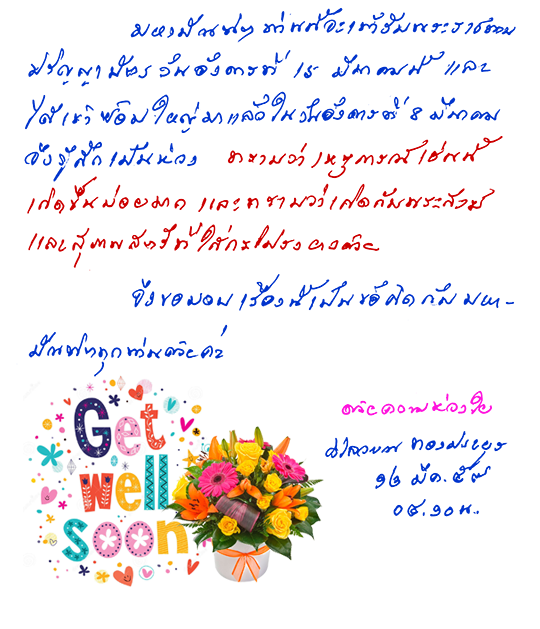 มหาบัณฑิตทุกท่านที่จะเข้ารับพระราชทาน
ปริญญาบัตรวันอังคารที่ ๑๕ มีนาคมนี้ และ
ได้เข้าซ้อมใหญ่มาแล้วในวันอังคารที่ 8 มีนาคม
จึงรู้สึกเป็นห่วง ทราบว่าเหตุการณ์เช่นนี้
เกิดขึ้นบ่อยมาก และทราบว่าเกิดกับพระสงฆ์
และสุภาพสตรีที่ใส่กระโปรงยาวด้วย
จึงขอมอบเรื่องนี้เป็นข้อคิดกับมหา-
บัณฑิตทุกท่านด้วยค่ะ
ด้วยความห่วงใย
ทองประยูร
๑๒ มีค. ๕๙
๐๕.๑๐น.
Get
well
soon